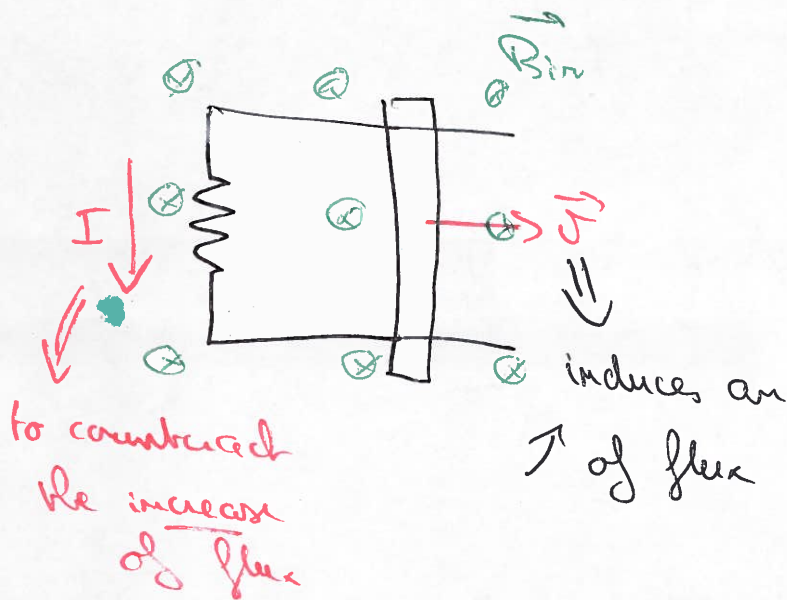 Bin
I
v
induces an
↗ of flux
to counteract
the increase
of flux